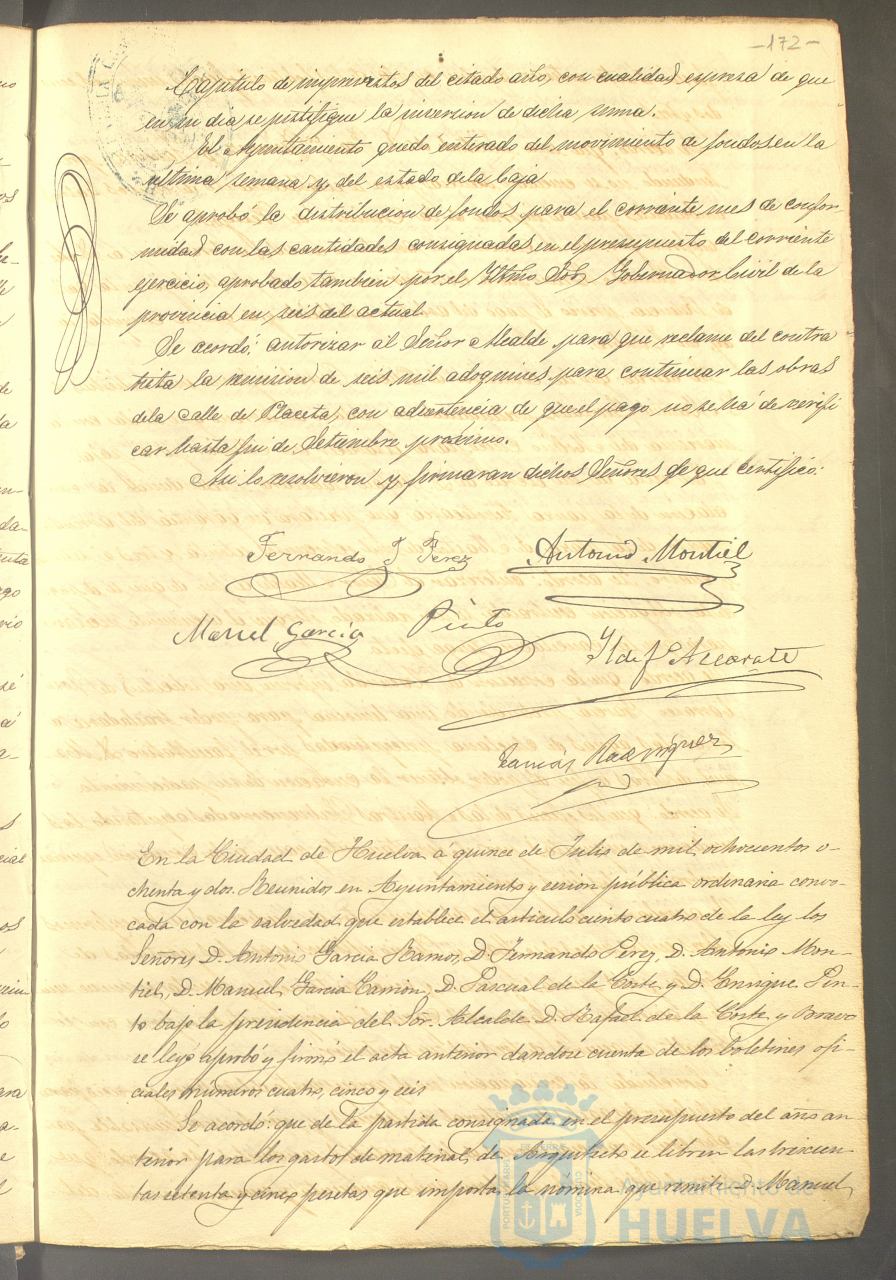 -172-
Capitulo de imprevistos del citado año, con cualidad espresa de que
en su dia se justifique la inversion de dicha suma.
El Ayuntamiento quedó enterado del movimiento de fondos en la
ultima semana y del estado de la Caja
Se aprobó la distribucion de fondos para el corriente mes de confor-
midad con las cantidades consignadas en el presupuesto del corriente
ejercicio, aprobado tambien por el Iltmo Sor Gobernador Civil de la
provincia en seis del actual
Se acordó: autorizar al Señor Alcalde para que reclame del contra
tista la remision de seis mil adoquines para continuar las obras
de la calle de Placeta, con advertencia de que el pago no se há de verifi
car hasta fin de Setiembre proximo.
Asi lo resolvieron y firmaran dichos Señores de que certificó:
Fernando J Perez Antonio Montiel
Manuel Garcia Pinto
Ildefo Azcarate
Tomás Rodriguez
En la Ciudad de Huelva á quince de Julio de mil ochocientos o-
chenta y dos. Reunidos en Ayuntamiento y cesion pública ordinaria convo-
cada con la salvedad que establece el articulo ciento cuatro de la ley los
Señores D. Antonio Garcia Ramos, D. Fernando Perez, D. Antonio Mon-
tiel, D. Manuel Garcia Carrion, D. Pascual de la Corte y D. Enrique Pin-
to bajo la presidencia del Sor. Alcalde D. Rafael de la Corte y Bravo
se leyó aprobó y firmó el acta anterior dandose cuenta de los boletines ofi-
ciales numeros cuatro, cinco y seis
Se acordó: que de la partida consignada en el presupuesto del año an-
terior para los gastos de material de Arquitecto se libren las trescien-
tas setenta y cinco pesetas que importa la nómina que remite D. Manuel
Ayuntamiento de
HUELVA